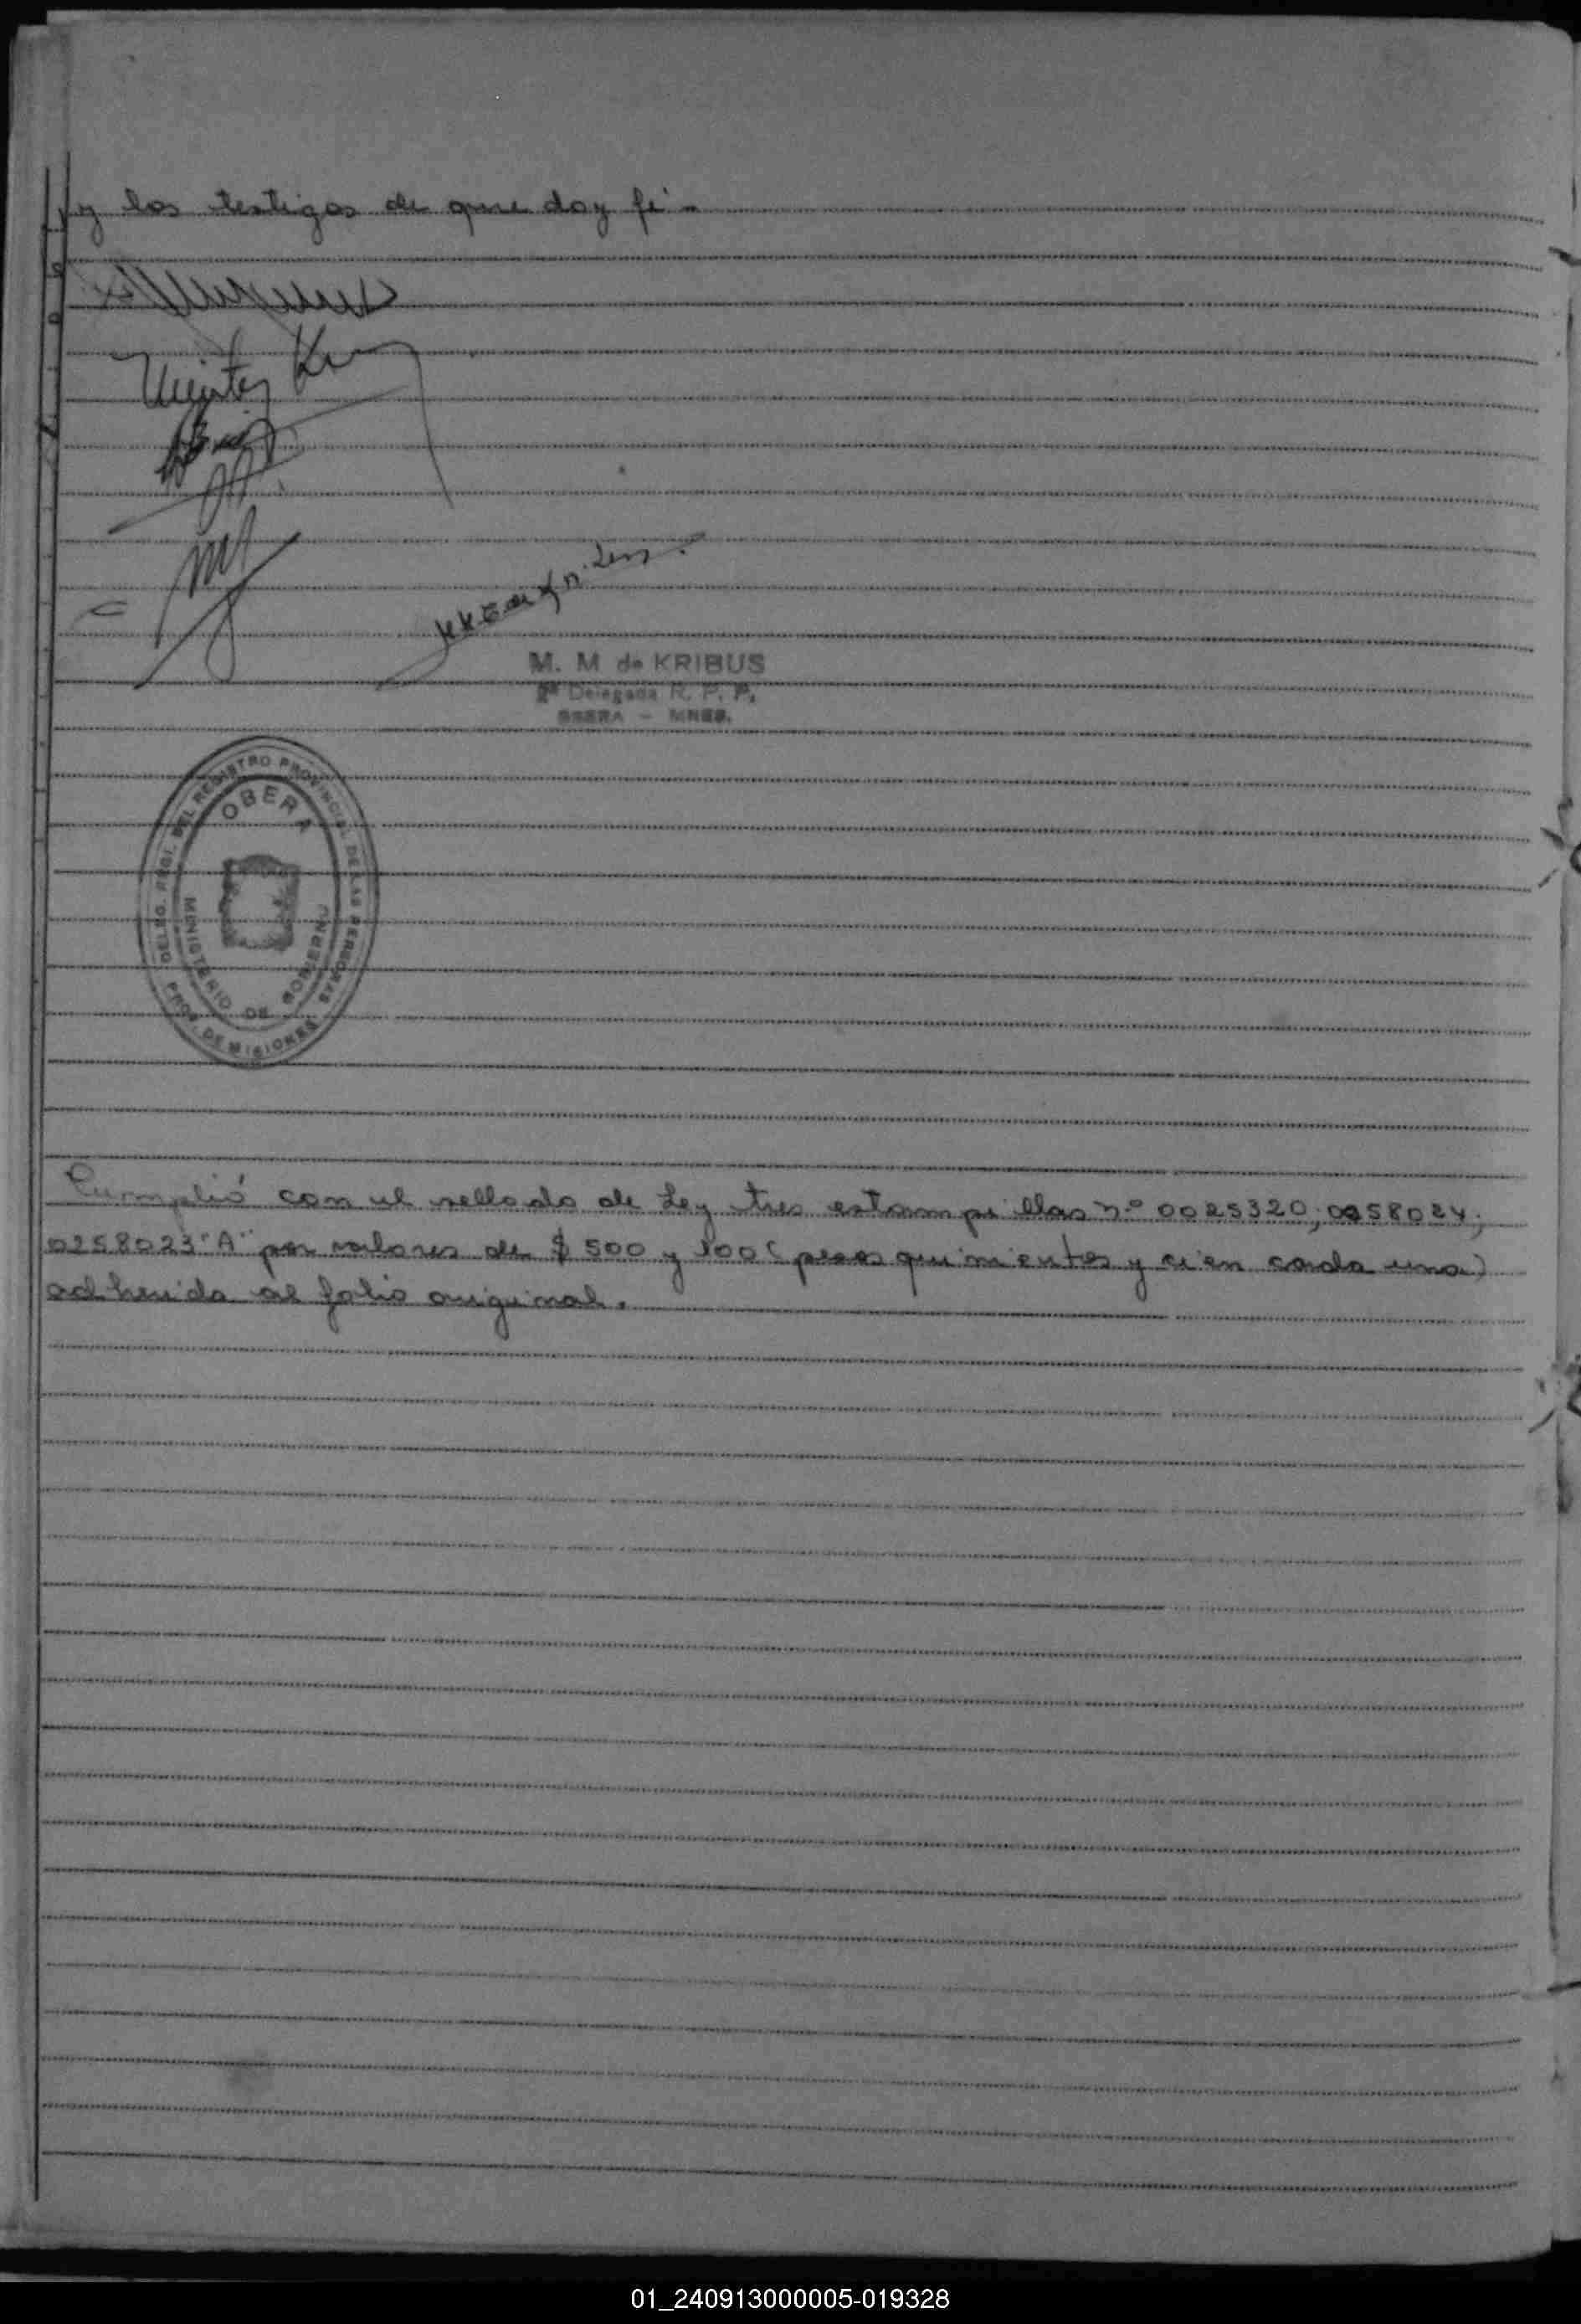 y los testigos de que doy fé -
Vicente
M. M de KRIBUS
2ª Delegada R. P. P.
OBERA - MNES.
DELEG. PRCI. DEL REGISTRO PROVINCIAL DE LAS PERSONAS
PROV. DE MISIONES
OBERA
MINISTERIO DE GOBIERNO
Cumplió con el sellado de Ley tres estampillas nº 0025320, 0258024;
0258023 "A" por valores de $ 500 y 100 (pesos quinientos y cien cada una)
adherida al folio original.
01_240913000005-019328